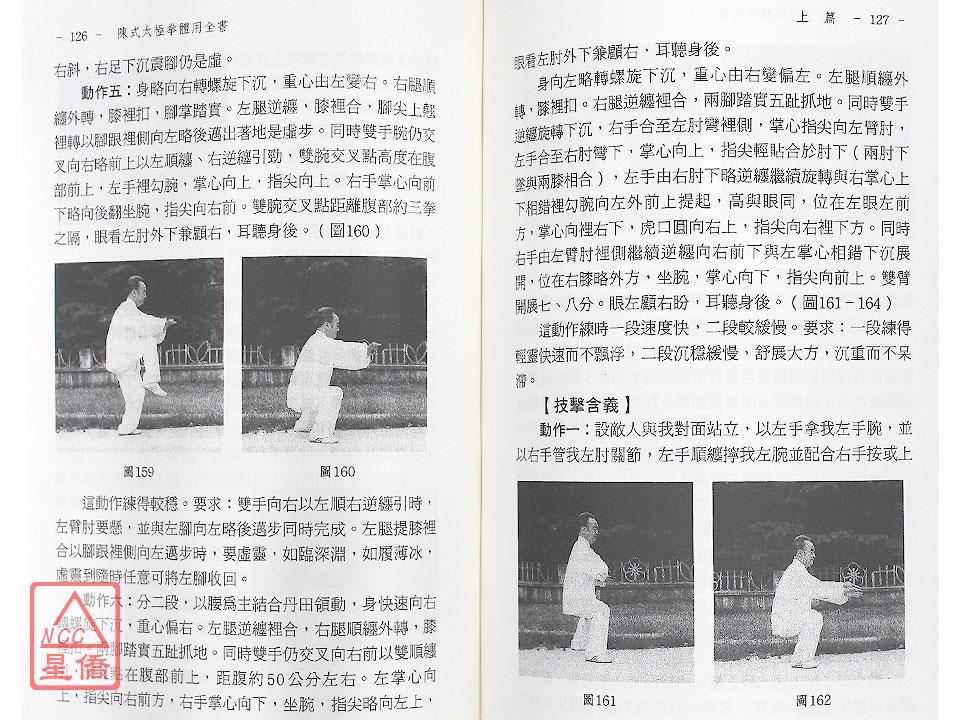 - 126 - 陳式太極拳體用全書
右斜，右足下沉震腳仍是虛。
動作五：身略向右轉螺旋下沉，重心由左變右。右腿順
纏外轉，膝裡扣，腳掌踏實。左腿逆纏，膝裡合，腳尖上翹
裡轉以腳跟裡側向左略後邁出著地是虛步。同時雙手腕仍交
叉向右略前上以左順纏、右逆纏引勁，雙腕交叉點高度在腹
部前上，左手裡勾腕，掌心向上，指尖向上。右手掌心向前
下略向後翻坐腕，指尖向右前。雙腕交叉點距離腹部約三拳
之隔，眼看左肘外下兼顧右，耳聽身後。（圖160）
圖159
圖160
這動作練得較穩。要求：雙手向右以左順右逆纏引時，
左臂肘要懸，並與左腳向左略後邁步同時完成。左腿提膝裡
合以腳跟裡側向左邁步時，要虛靈，如臨深淵，如履薄冰，
虛靈到隨時任意可將左腳收回。
動作六：分二段，以腰爲主結合丹田領動，身快速向右
轉螺旋下沉，重心偏右。左腿逆纏裡合，右腿順纏外轉，膝
裡扣。兩腳踏實五趾抓地。同時雙手仍交叉向右前以雙順纏
點在腹部前上，距腹約50公分左右。左掌心向
上，指尖向右前方，右手掌心向下，坐腕，指尖向左上，
NCC
星僑
上 篇 - 127 -
眼看左肘外下兼顧右，耳聽身後。
身向左略轉螺旋下沉，重心由右變偏左。左腿順纏外
轉，膝裡扣。右腿逆纏裡合，兩腳踏實五趾抓地。同時雙手
逆纏旋轉下沉，右手合至左肘彎裡側，掌心指尖向左臂肘，
左手合至右肘彎下，掌心向上，指尖輕貼合於肘下（兩肘下
墜與兩膝相合），左手由右肘下略逆纏繼續旋轉與右掌心上
下相錯裡勾腕向左外前上提起，高與眼同，位在左眼左前
方，掌心向裡右下，虎口圓向右上，指尖向右裡下方。同時
右手由左臂肘裡側繼續逆纏向右前下與左掌心相錯下沉展
開，位在右膝略外方，坐腕，掌心向下，指尖向前上。雙臂
開展七、八分。眼左顧右盼，耳聽身後。（圖161－164）
這動作練時一段速度快，二段較緩慢。要求：一段練得
輕靈快速而不飄浮，二段沉穩緩慢，舒展大方，沉重而不呆
滯。
【技擊含義】
動作一：設敵人與我對面站立，以左手拿我左手腕，並
以右手管我左肘關節，左手順纏擰我左腕並配合右手按或上
圖161
圖162